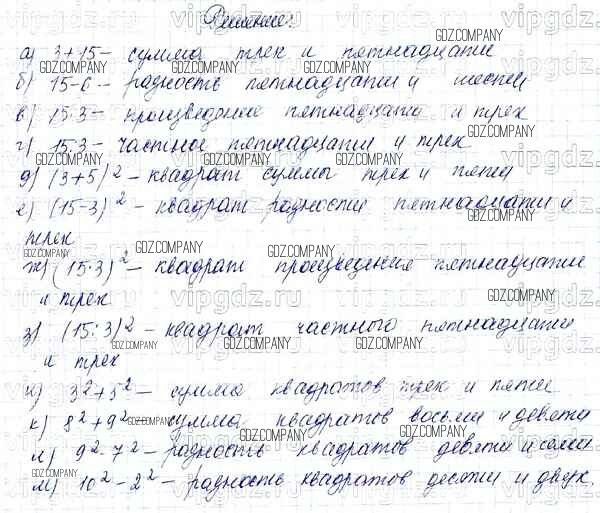 Решение:
а) 3+15 – сумма трех и пятнадцати
б) 15-6 – разность пятнадцати и шести
в) 15·3 – произведение пятнадцати и трех
г) 15:3 – частное пятнадцати и трех
д) (3+5)² – квадрат суммы трех и пяти
е) (15-3)² – квадрат разности пятнадцати и
трех
ж) (15·3)² – квадрат произведения пятнадцати
и трех
з) (15:3)² – квадрат частного пятнадцати
и трех
и) 3²+5² – сумма квадратов трех и пяти
к) 8²+9² – сумма квадратов восьми и девяти
л) 9²-7² – разность квадратов девяти и семи
м) 10²-2² – разность квадратов десяти и двух.
GDZ.COMPANY
vipgdz.ru